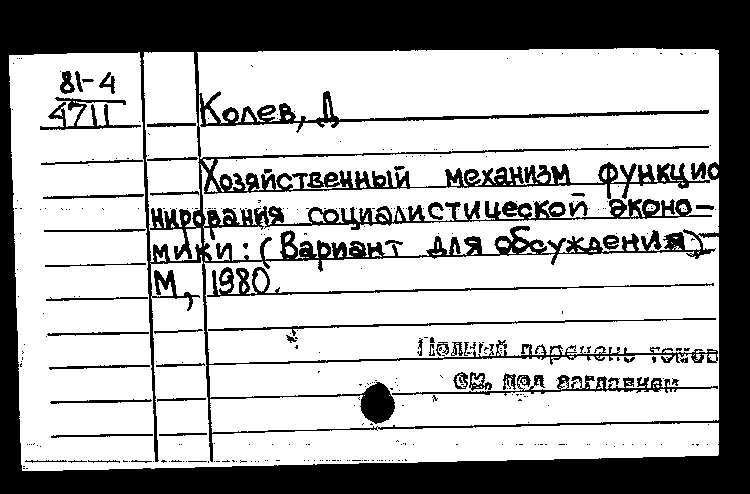 81-4
4711
Колев, Д
Хозяйственный механизм функцио
нирования социалистической эконо-
мики: (Вариант для обсуждения)-
М, 1980.
Полный перечень томов
см. под заглавием